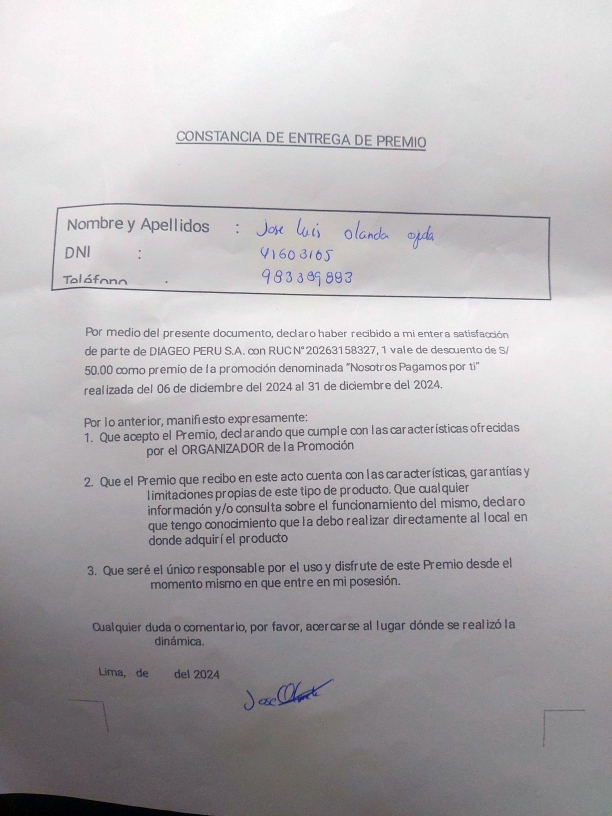 CONSTANCIA DE ENTREGA DE PREMIO
Nombre y Apellidos : Jose Luis Olanda Ojeda
DNI : 41603165
Teléfono : 983389883
Por medio del presente documento, declaro haber recibido a mi entera satisfacción
de parte de DIAGEO PERU S.A. con RUC N° 20263158327, 1 vale de descuento de S/
50.00 como premio de la promoción denominada "Nosotros Pagamos por ti"
realizada del 06 de diciembre del 2024 al 31 de diciembre del 2024.
Por lo anterior, manifiesto expresamente:
1. Que acepto el Premio, declarando que cumple con las características ofrecidas
por el ORGANIZADOR de la Promoción
2. Que el Premio que recibo en este acto cuenta con las características, garantías y
limitaciones propias de este tipo de producto. Que cualquier
información y/o consulta sobre el funcionamiento del mismo, declaro
que tengo conocimiento que la debo realizar directamente al local en
donde adquirí el producto
3. Que seré el único responsable por el uso y disfrute de este Premio desde el
momento mismo en que entre en mi posesión.
Cualquier duda o comentario, por favor, acercarse al lugar dónde se realizó la
dinámica.
Lima, de del 2024
Jose